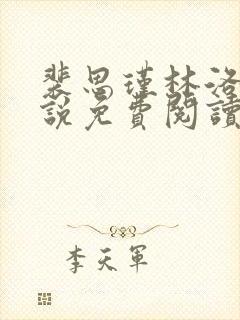 裴思瑾林洛
說免費閱讀
李天軍